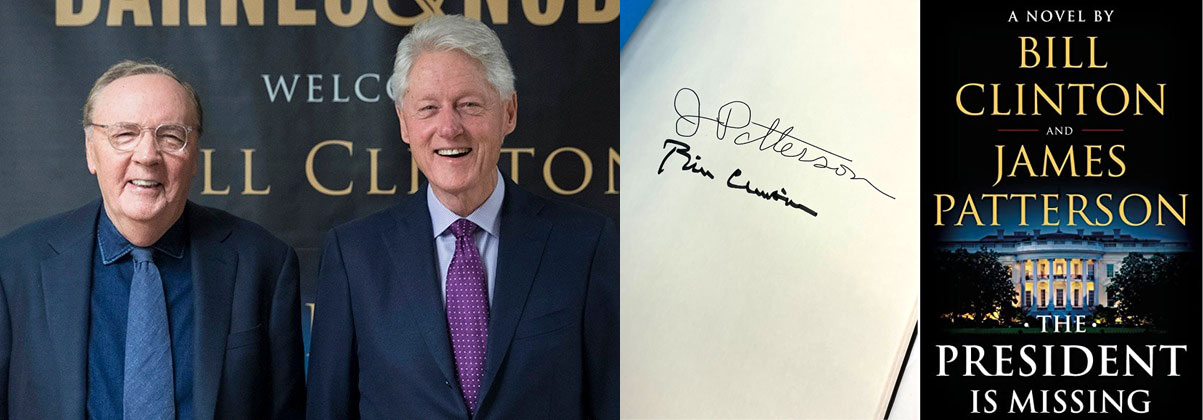 BARNES & NOB
WELCO
ILL CLINTON
J Patterson
Bill Clinton
A NOVEL BY
BILL
CLINTON
AND
JAMES
PATTERSON
· THE ·
PRESIDENT
IS MISSING